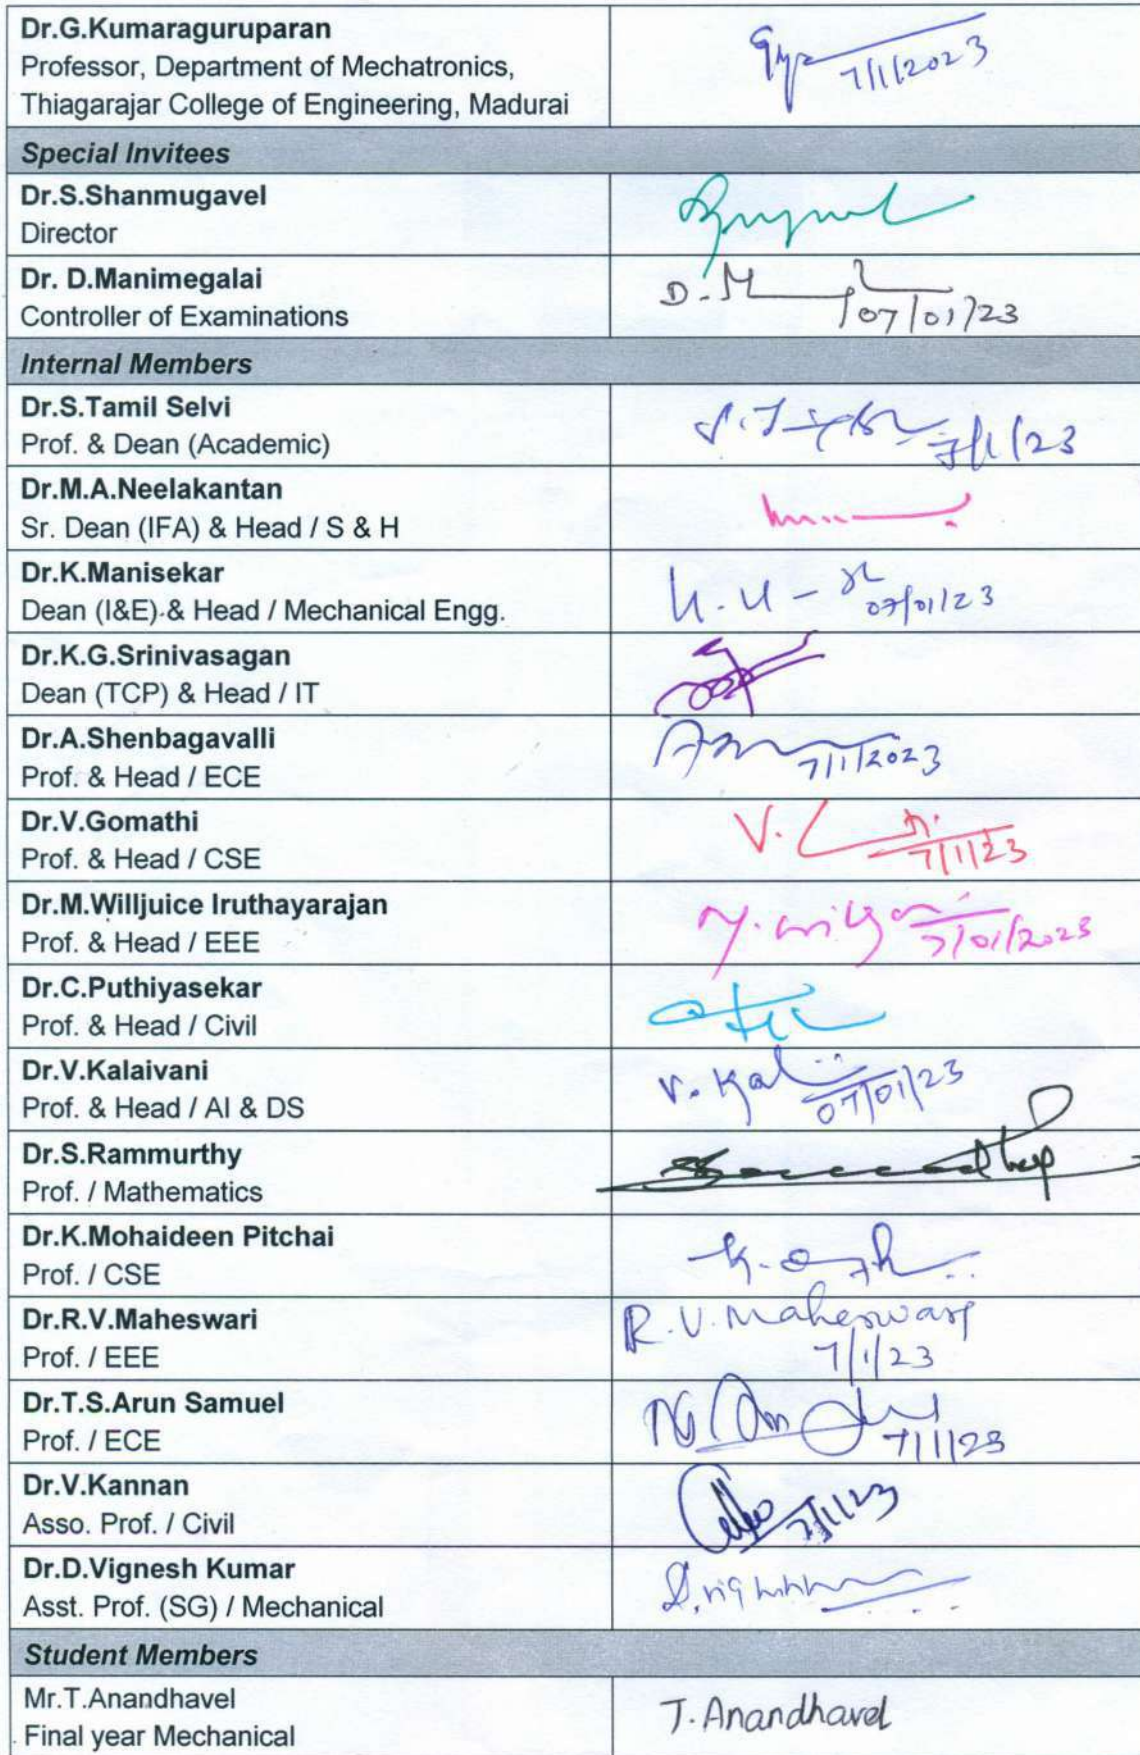 Dr.G.Kumaraguruparan
Professor, Department of Mechatronics,
Thiagarajar College of Engineering, Madurai
7/1/2023
Special Invitees
Dr.S.Shanmugavel
Director
Dr. D.Manimegalai
Controller of Examinations
D.M
07/01/23
Internal Members
Dr.S.Tamil Selvi
Prof. & Dean (Academic)
7/1/23
Dr.M.A.Neelakantan
Sr. Dean (IFA) & Head / S & H
Dr.K.Manisekar
Dean (I&E) & Head / Mechanical Engg.
07/01/23
Dr.K.G.Srinivasagan
Dean (TCP) & Head / IT
Dr.A.Shenbagavalli
Prof. & Head / ECE
7/1/2023
Dr.V.Gomathi
Prof. & Head / CSE
7/1/23
Dr.M.Willjuice Iruthayarajan
Prof. & Head / EEE
7/01/2023
Dr.C.Puthiyasekar
Prof. & Head / Civil
Dr.V.Kalaivani
Prof. & Head / AI & DS
V. Kal
07/01/23
Dr.S.Rammurthy
Prof. / Mathematics
Dr.K.Mohaideen Pitchai
Prof. / CSE
Dr.R.V.Maheswari
Prof. / EEE
R.V.Maheswari
7/1/23
Dr.T.S.Arun Samuel
Prof. / ECE
7/1/23
Dr.V.Kannan
Asso. Prof. / Civil
7/1/23
Dr.D.Vignesh Kumar
Asst. Prof. (SG) / Mechanical
Student Members
Mr.T.Anandhavel
Final year Mechanical
T. Anandhavel